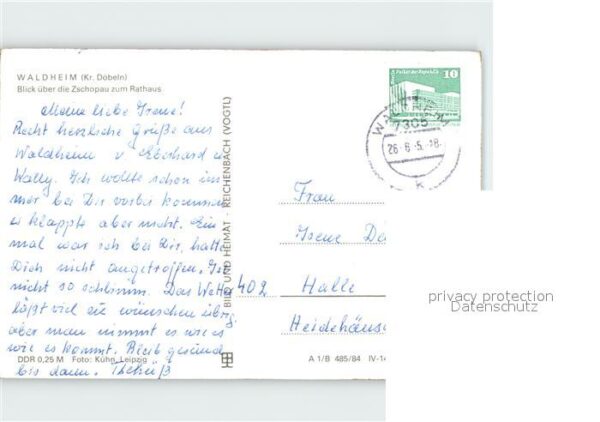 WALDHEIM (Kr. Döbeln)
Blick über die Zschopau zum Rathaus
Meine liebe Irene!
Recht herzliche Grüße aus
Waldheim v. Eberhard u.
Wally. Ich wollte schon im-
mer bei Dir vorbei kommen
es klappte aber nicht. Ein
mal war ich bei Dir, hatte
Dich nicht angetroffen,
nicht so schlimm. Das Wetter
läßt viel zu wünschen übrig,
aber man nimmt es wie es
wie es kommt. Bleib gesund
bis dann.
DDR 0,25 M Foto: Kühn, Leipzig
BILD UND HEIMAT · REICHENBACH (VOGTL)
10
WALDHEIM
7305
26.-6.-5.-18
k
Frau
Irene
402 Halle
Heidehäuser
A 1/B 485/84 IV-14
privacy protection
Datenschutz